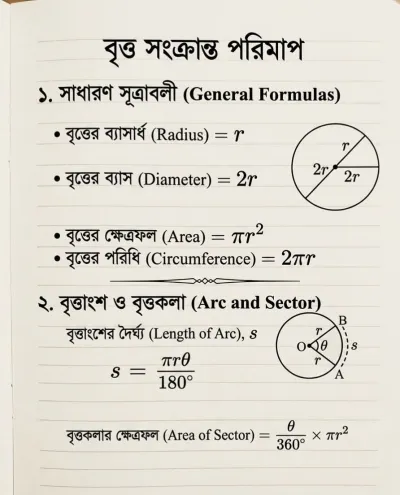 বৃত্ত সংক্রান্ত পরিমাপ
১. সাধারণ সূত্রাবলী (General Formulas)
• বৃত্তের ব্যাসার্ধ (Radius) = r
• বৃত্তের ব্যাস (Diameter) = 2r
r
2r
2r
• বৃত্তের ক্ষেত্রফল (Area) = πr²
• বৃত্তের পরিধি (Circumference) = 2πr
২. বৃত্তাংশ ও বৃত্তকলা (Arc and Sector)
বৃত্তাংশের দৈর্ঘ্য (Length of Arc), s
s = πrθ / 180°
B
r
O θ s
r
A
বৃত্তকলার ক্ষেত্রফল (Area of Sector) = θ/360° × πr²